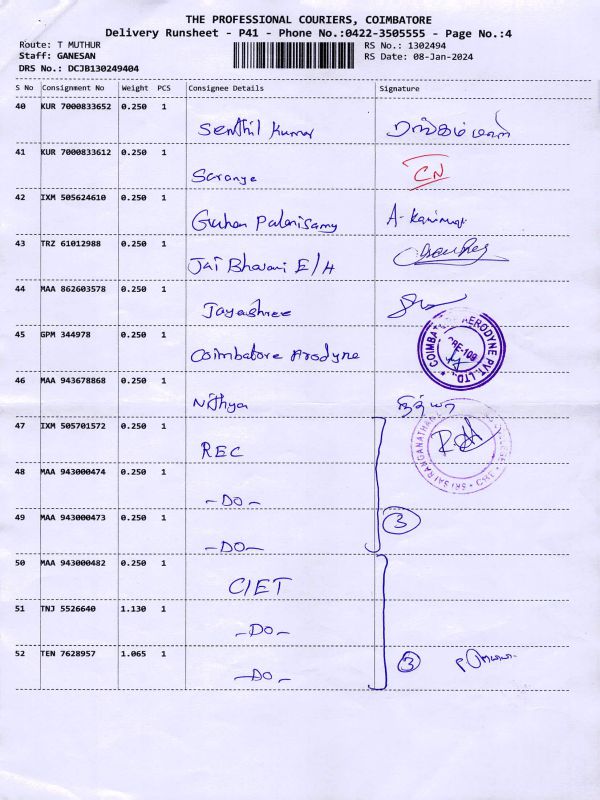 THE PROFESSIONAL COURIERS, COIMBATORE
Delivery Runsheet - P41 - Phone No.:0422-3505555 - Page No.:4
Route: T MUTHUR RS No.: 1302494
Staff: GANESAN RS Date: 08-Jan-2024
DRS No.: DCJB130249404
S No Consignment No Weight PCS Consignee Details Signature
40 KUR 7000833652 0.250 1
Senthil Kumar
41 KUR 7000833612 0.250 1
Saranya CN
42 IXM 505624610 0.250 1
Palanisamy
43 TRZ 61012988 0.250 1
Jai Bhavani E/H
44 MAA 862603578 0.250 1
Jayashree
45 GPM 344978 0.250 1
Coimbatore Arodyne
COIMBATORE AERODYNE PVT. LTD.
46 MAA 943678868 0.250 1
Nithya நித்யா
47 IXM 505701572 0.250 1
REC
48 MAA 943000474 0.250 1
-DO-
49 MAA 943000473 0.250 1
-DO- 3
50 MAA 943000482 0.250 1
CIET
51 TNJ 5526640 1.130 1
-DO-
52 TEN 7628957 1.065 1
-DO- 3